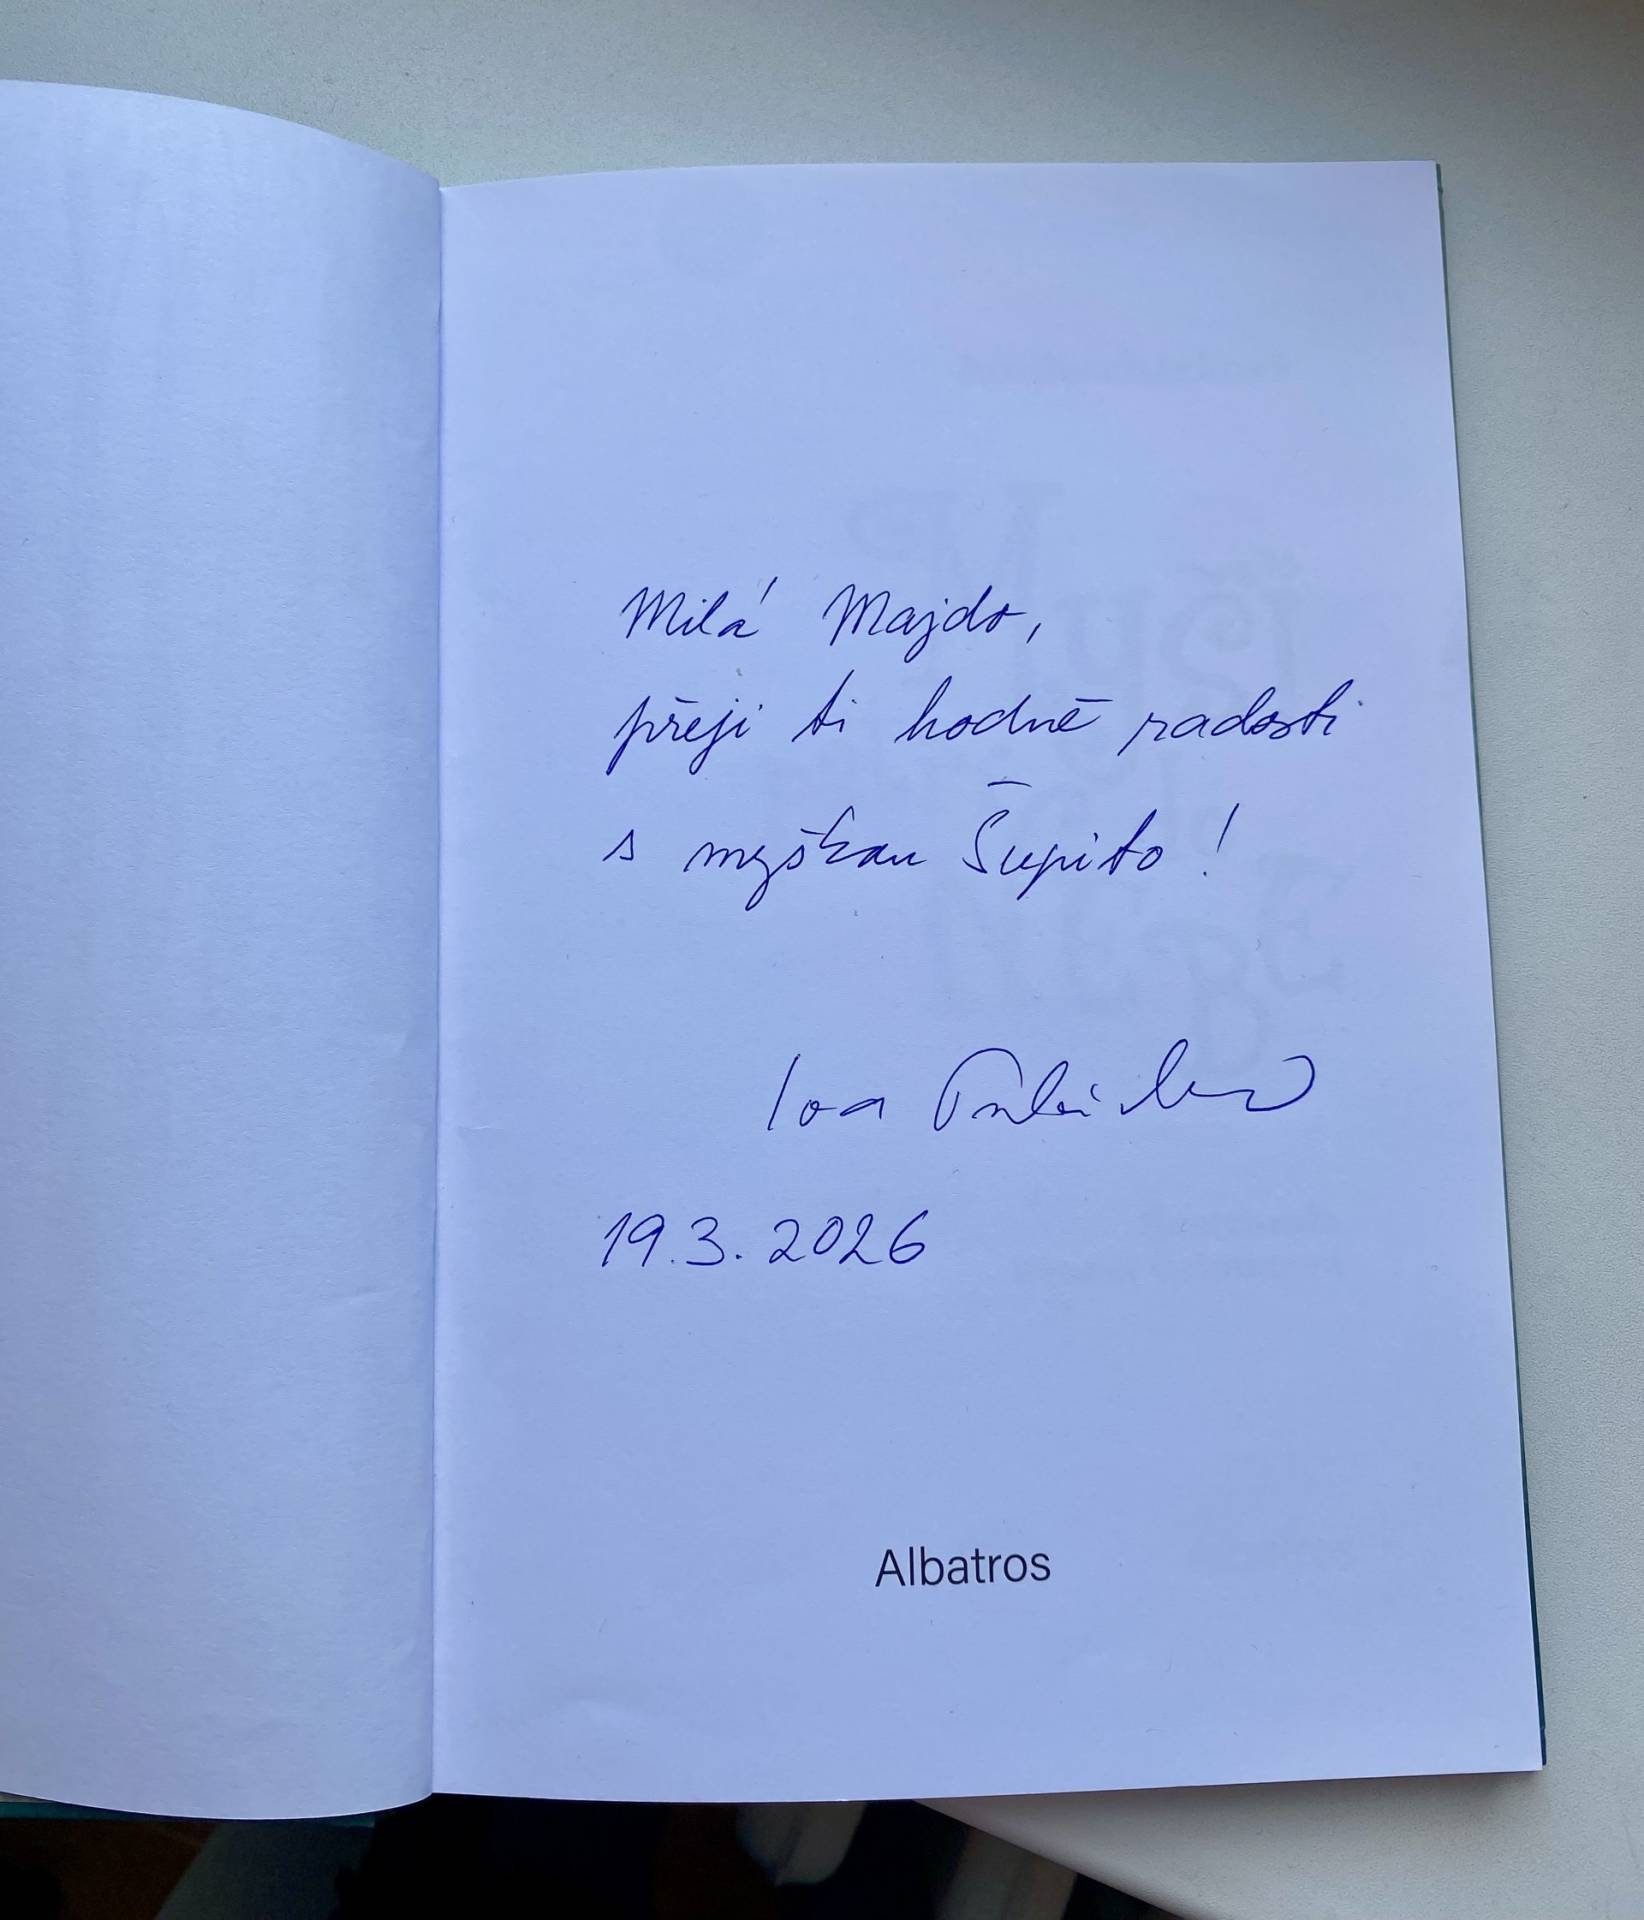 Milá Majdo,
přeji ti hodně radosti
s myškou Šupito!
Iva
19.3.2026
Albatros